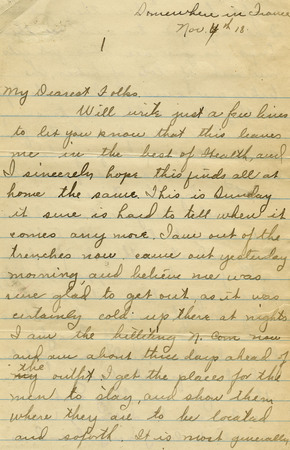 Somewhere in France
Nov. 4th 18.
1
My Dearest Folks.
Will write just a few lines
to let you know that this leaves
me in the best of Health, and
I sincerely hope this finds all at
home the same. This is Sunday
it sure is hard to tell when it
comes any more. I am out of the
trenches now came out yesterday
morning, and believe me was
sure glad to get out, as it was
certainly cold up there at nights
I am the billiting N. Com now
and run about three days ahead of
the
my outfit I get the places for the
men to stay, and show them
where they are to be located
and soforth. It is most generally